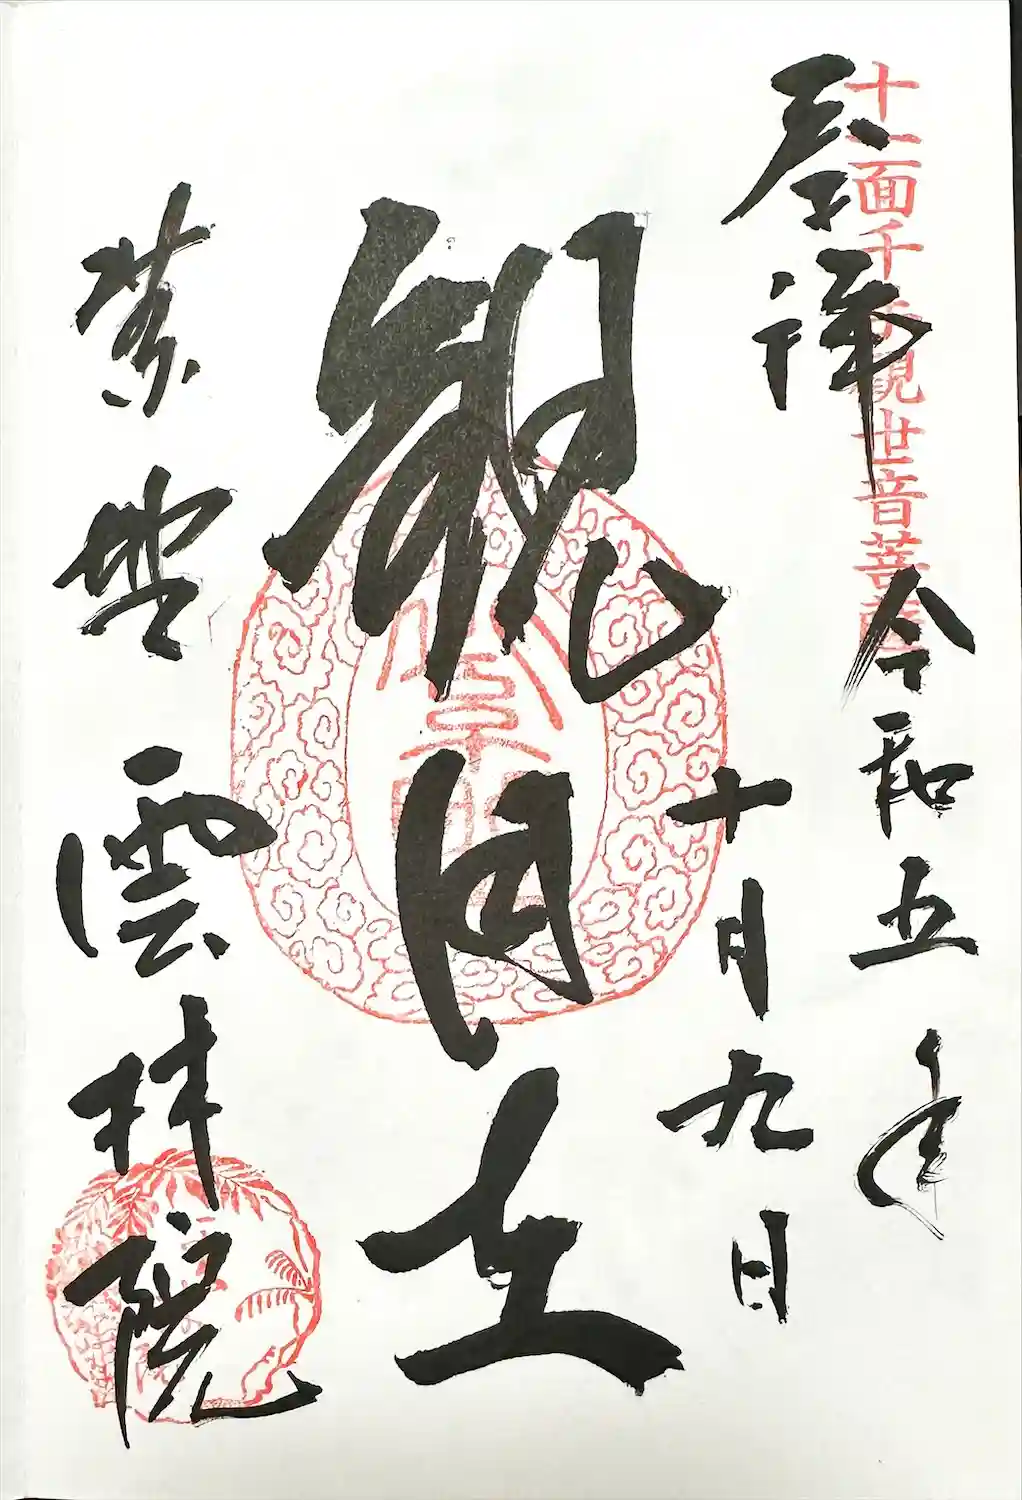 十一面千手観世音菩薩
奉拝
令和五年
十月九日
観自在
紫埜 雲林院